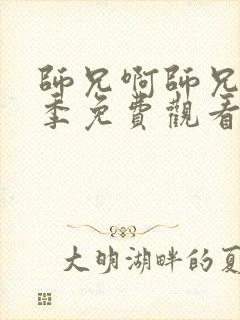 師兄啊師兄
季免費觀看
大明湖畔的夏